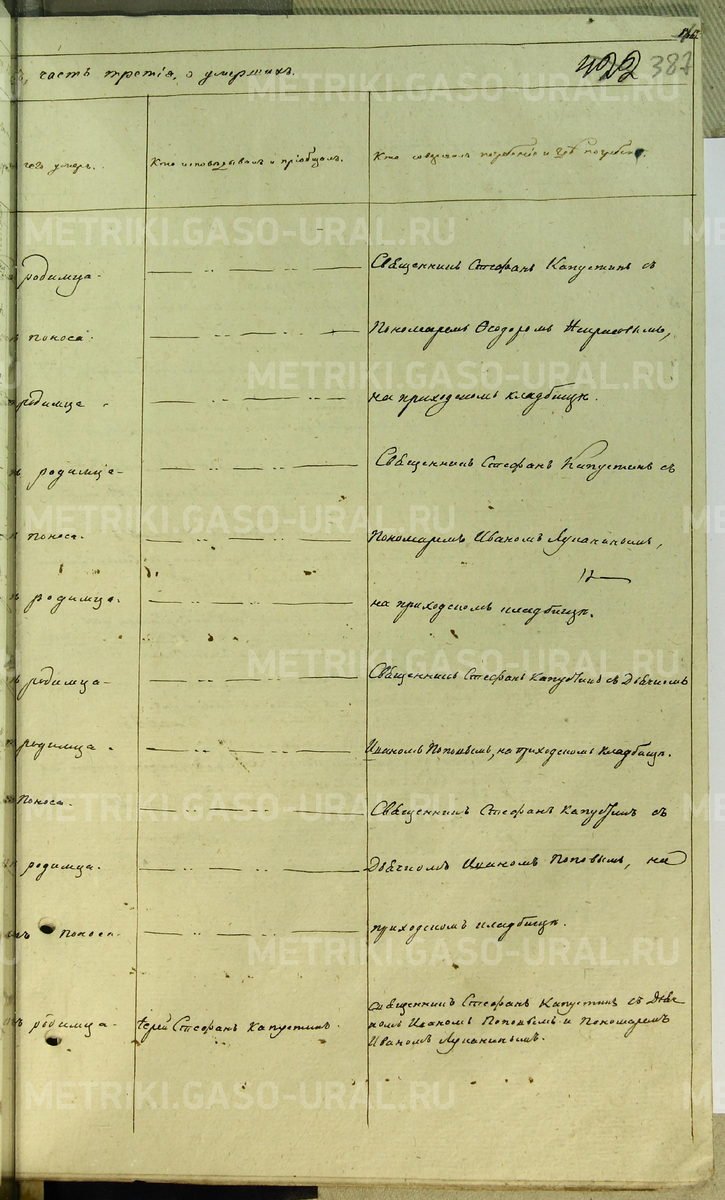 часть третія, о умершихъ.
422 387
чего умеръ. Кто исповѣдывалъ и пріобщалъ. Кто совершалъ погребеніе и гдѣ погребенъ.
родимца. Священникъ Стефанъ Капустинъ съ
поноса. Пономаремъ Ѳеодоромъ
родимца на приходскомъ кладбищѣ.
родимца. Священникъ Стефанъ Капустинъ съ
поноса. Пономаремъ Иваномъ Лупанинымъ,
родимца. на приходскомъ кладбищѣ.
родимца. Священникъ Стефанъ Капустинъ съ Дьячкомъ
родимца. Иваномъ Поповымъ, на приходскомъ кладбищѣ.
поноса. Священникъ Стефанъ Капустинъ съ
родимца. Дьячкомъ Иваномъ Поповымъ, на
поноса. приходскомъ кладбищѣ.
родимца. Іерей Стефанъ Капустинъ. Священникъ Стефанъ Капустинъ съ Дьяч-
комъ Иваномъ Поповымъ и Пономаремъ
Иваномъ Лупанинымъ.
METRIKI.GASO-URAL.RU